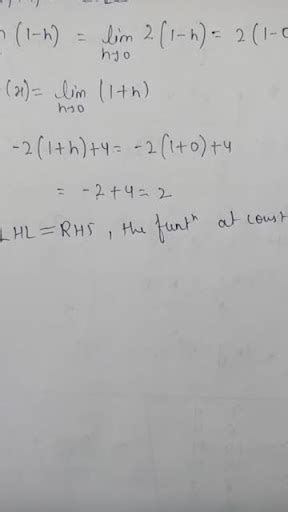 (1-h) = lim h→0 2(1-h) = 2(1-0
(x) = lim h→0 (1+h)
-2(1+h)+4 = -2(1+0)+4
= -2+4 = 2
LHL = RHS, the funtⁿ at const